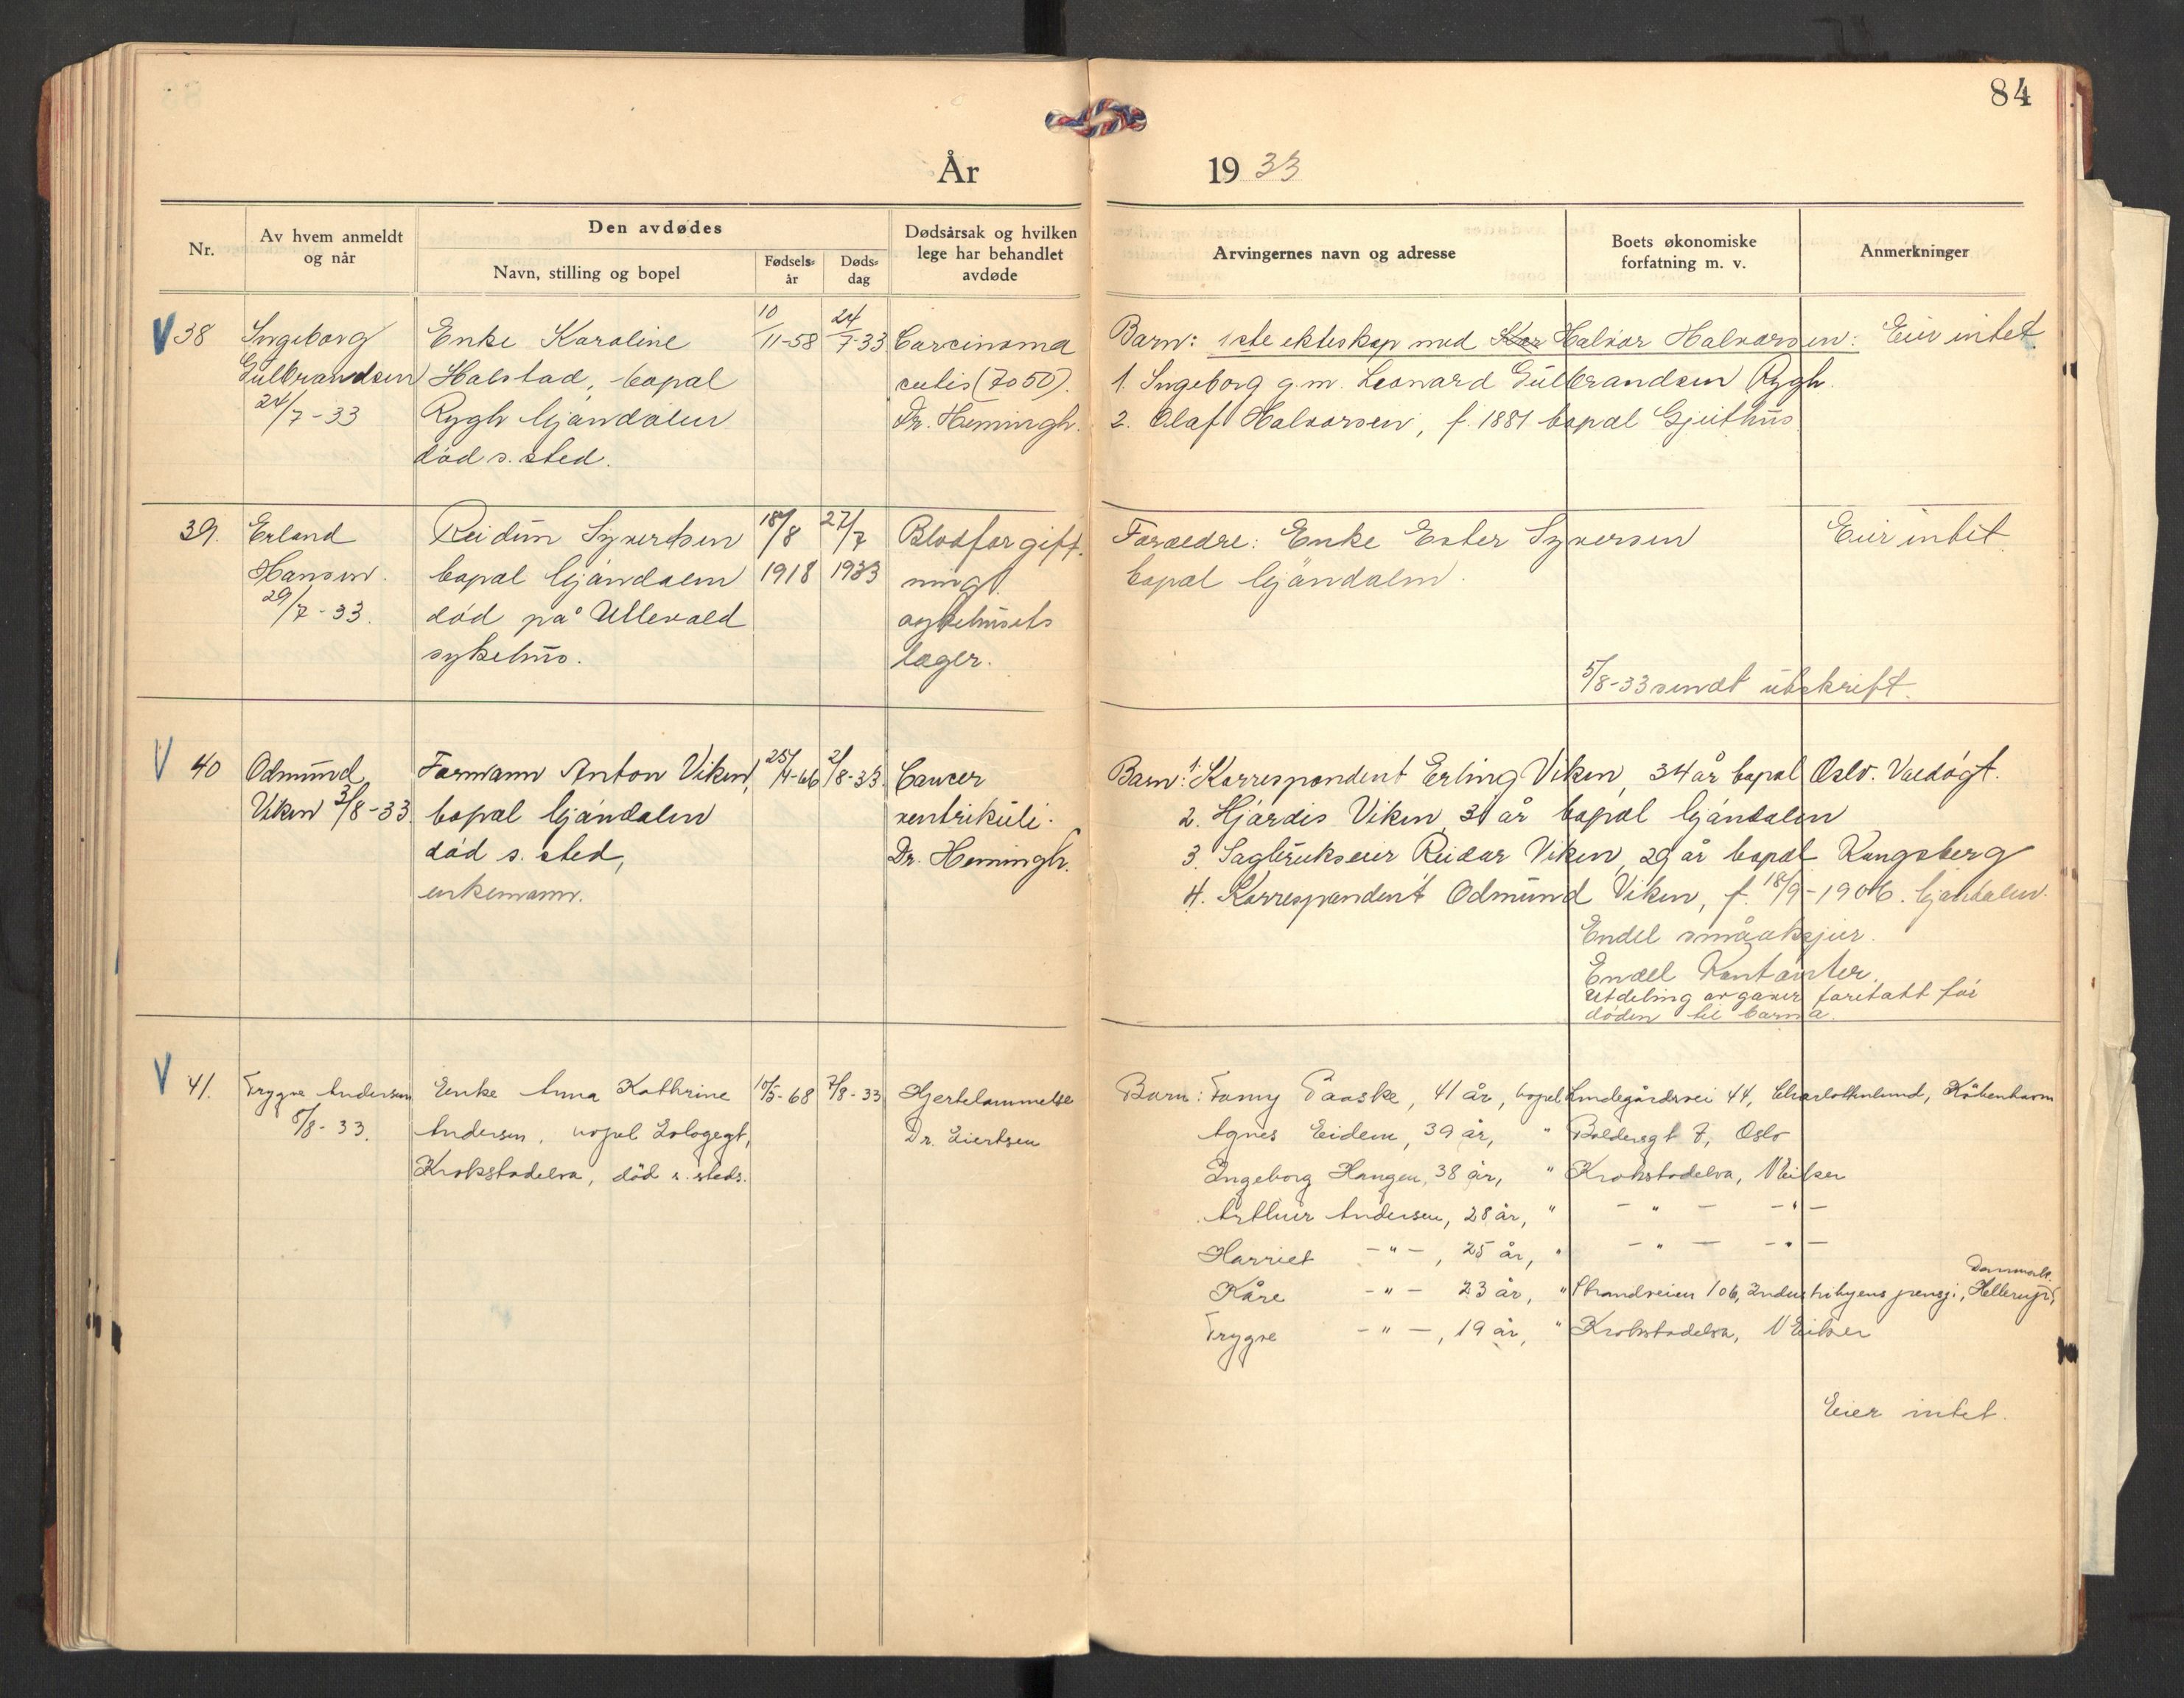 84
År 1933
Nr.
Av hvem anmeldt
og når
Den avdødes
Navn, stilling og bopel
Fødsels-
år
Døds-
dag
Dødsårsak og hvilken
lege har behandlet
avdøde
Arvingernes navn og adresse
Boets økonomiske
forfatning m. v.
Anmerkninger
V 38
Ingeborg
Gulbrandsen
24/7-33
Enke Karoline
Halstad, bopæl
Rygh Mjøndalen
død s. sted.
10/11-58
24/7-33
Carcinoma
cutis (7050).
Dr. Hemingh.
Barn: 1ste ekteskap med Halvor Halvorsen:
Eier intet
1. Ingeborg g.m. Leonard Gulbrandsen Rygh.
2. Olaf Halvorsen, f. 1881 bopæl Gjeithus
39.
Erland
Hansen.
29/7-33.
Reidun Syvertsen
bopæl Mjøndalen
død på Ullevåld
sykehus.
18/8
1918
27/7
1933
Blodforgift-
ning.
sykehusets
læger.
Foreldre: Enke Ester Syversen
bopæl Mjøndalen.
Eier intet
5/8-33 sendt utskrift.
V 40
Odmund
Viken 3/8-33.
Formann Anton Viken,
bopæl Mjøndalen
død s. sted,
enkemann.
25/4-66
2/8-33.
Cancer
ventrikuli.
Dr. Hemingh.
Barn: 1. Korrespondent Erling Viken, 34 år bopæl Oslo. Valdøgt.
2. Hjørdis Viken, 31 år bopæl Mjøndalen
3. Sagbrukseier Reidar Viken, 29 år bopæl Kongsberg
4. Korrespondent Odmund Viken, f. 18/9-1906. Mjøndalen.
Endel småaksjer.
Endel Kontanter.
Utdeling av gaver foretatt før
døden til barna.
V 41.
Trygve Andersen
8/8-33.
Enke Anna Kathrine
Andersen, bopel Lologegt,
Krokstadelva, død s. steds.
10/5-68
7/8-33
Hjertelammelse
Dr. Eiertsen
Barn: Fanny Paaske, 41 år, bopel Lindegårdsvei 44, Charlottenlund, København
Agnes Eidem, 39 år, " Baldersgt 7, Oslo
Ingeborg Haugen, 38 år, " Krokstadelva, N Eiker
Arthur Andersen, 28 år, " - " - - " -
Harriet - " -, 25 år, " - " - - " -
Kåre - " - 23 år, " Strandveien 106, Industribyens pensj., Hellerup, Danmark.
Trygve - " -, 19 år, " Krokstadelva, N Eiker
Eier intet.